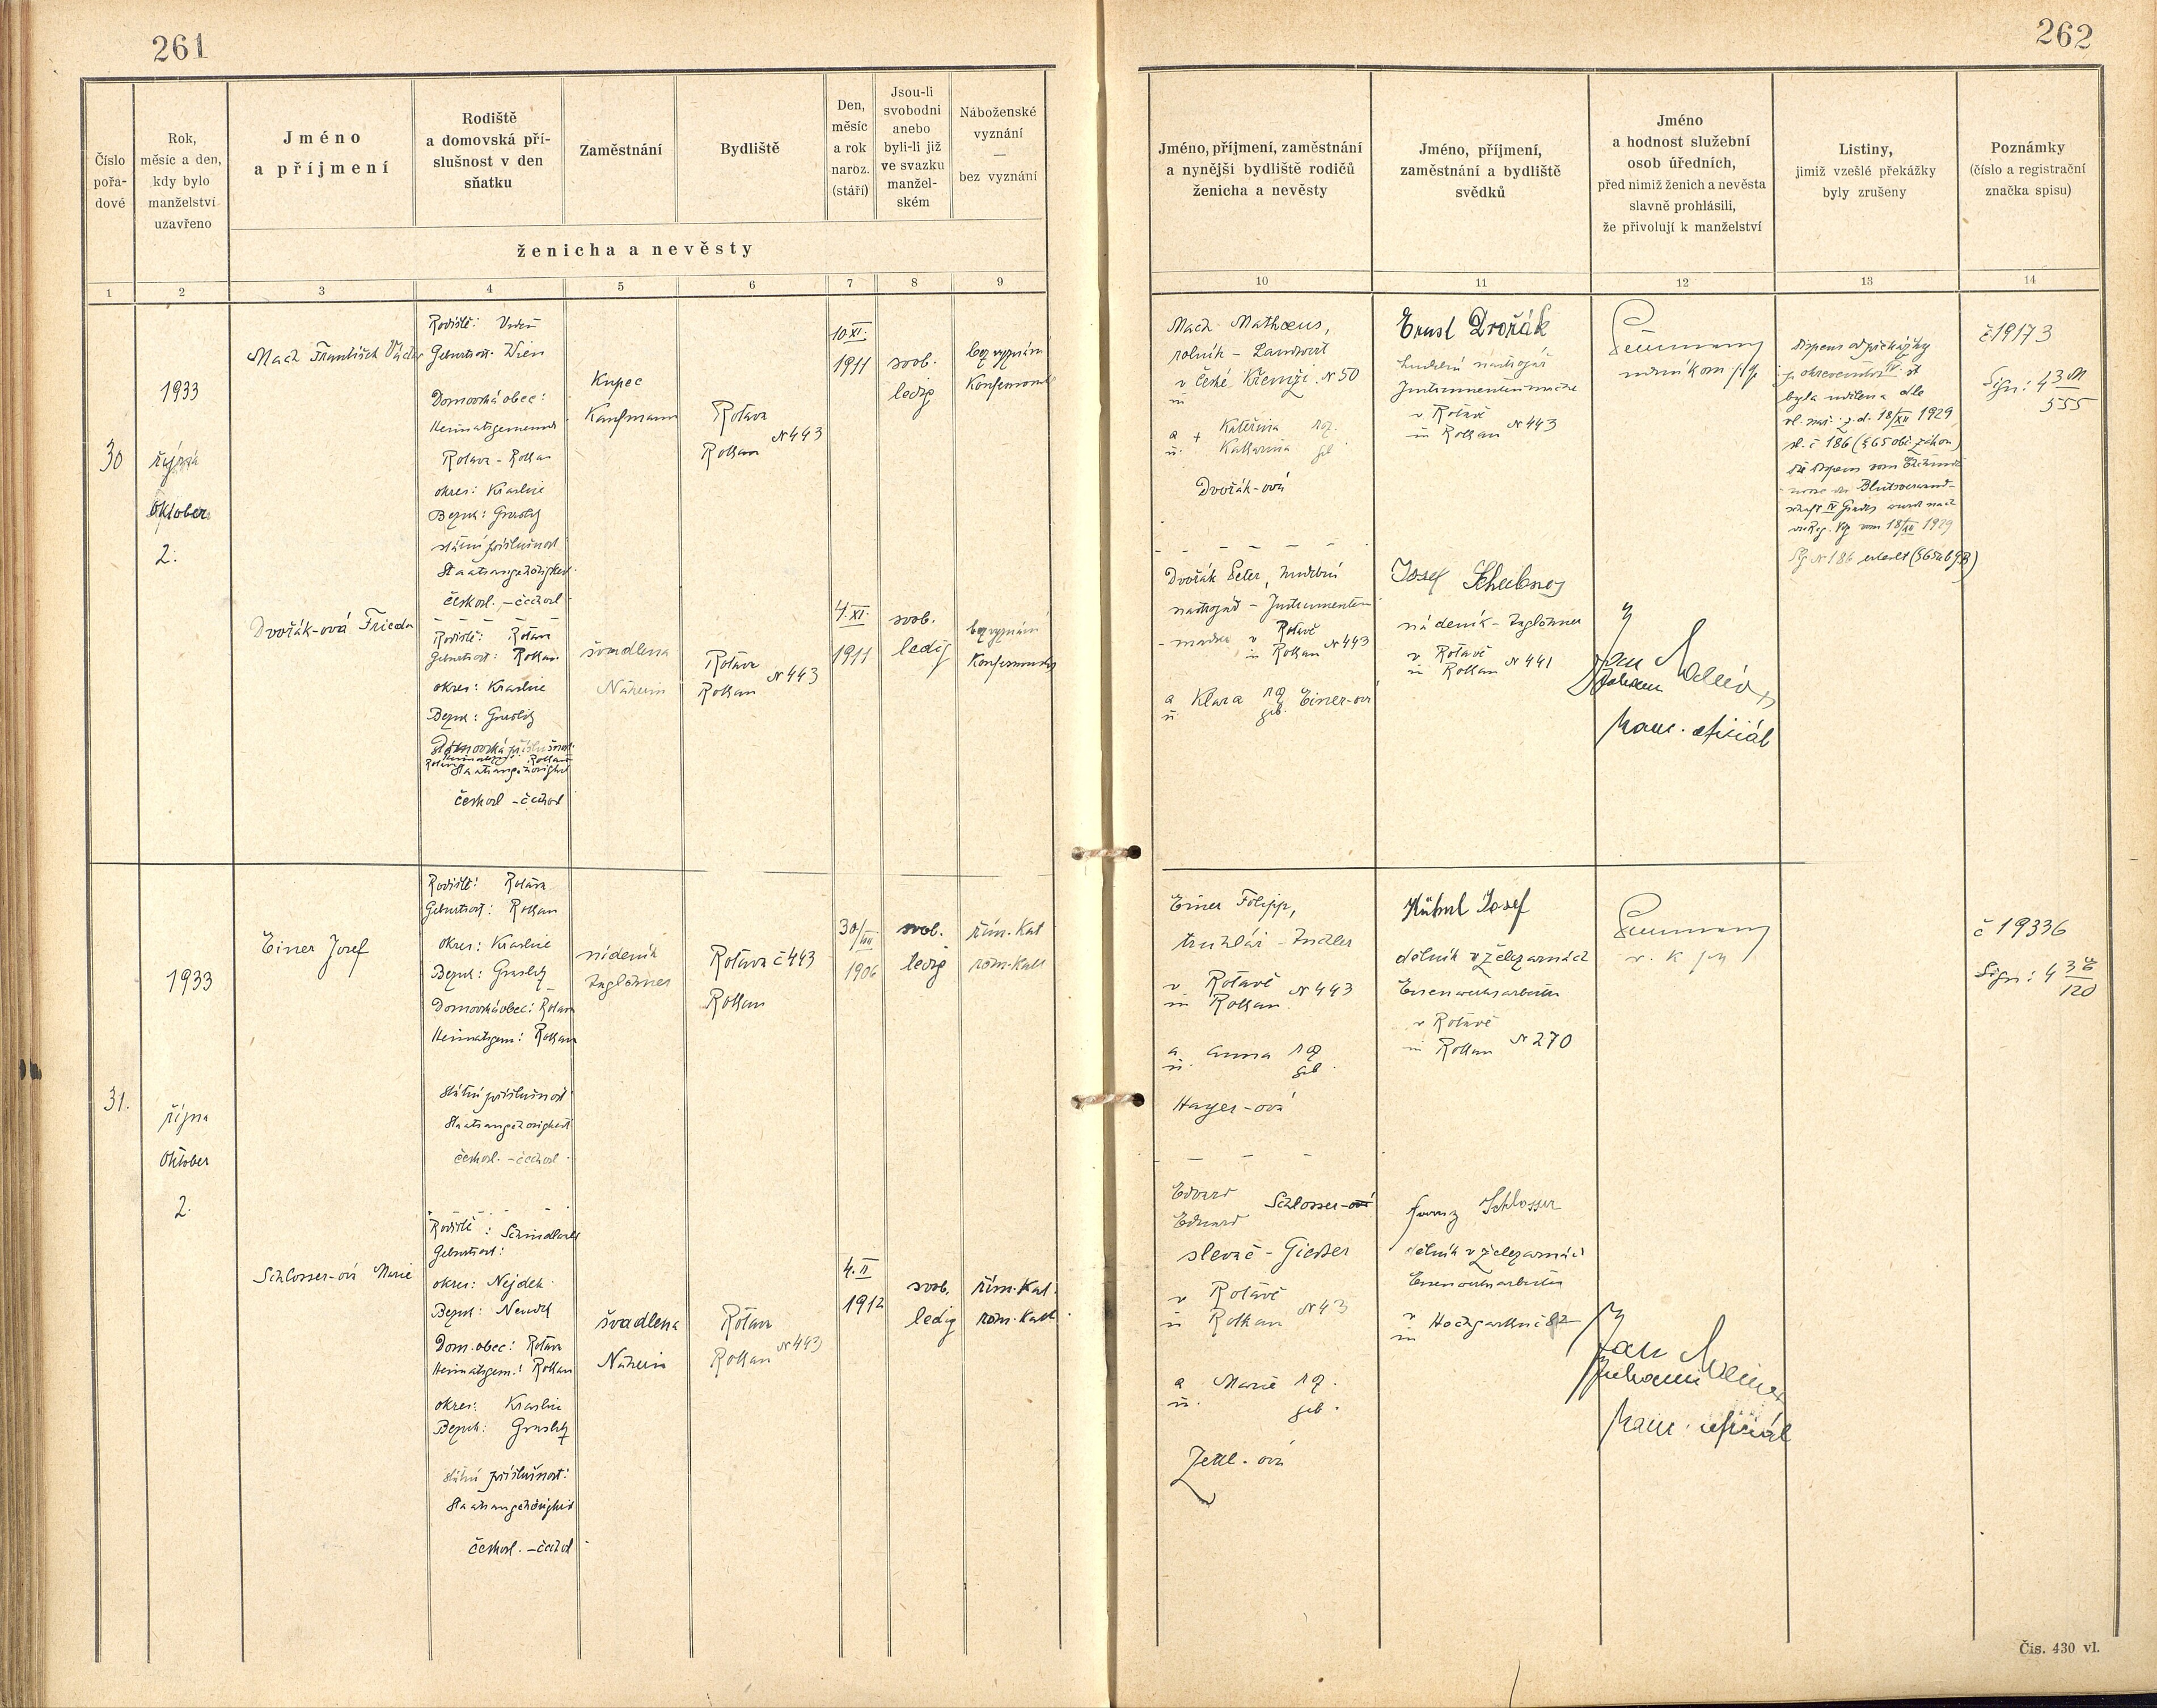 261
262
Číslo
pořa-
dové
Rok,
měsíc a den,
kdy bylo
manželství
uzavřeno
Jméno
a příjmení
Rodiště
a domovská pří-
slušnost v den
sňatku
Zaměstnání
Bydliště
Den,
měsíc
a rok
naroz.
(stáří)
Jsou-li
svobodni
anebo
byli-li již
ve svazku
manžel-
ském
Náboženské
vyznání
—
bez vyznání
ženicha a nevěsty
Jméno, příjmení, zaměstnání
a nynější bydliště rodičů
ženicha a nevěsty
Jméno, příjmení,
zaměstnání a bydliště
svědků
Jméno
a hodnost služební
osob úředních,
před nimiž ženich a nevěsta
slavně prohlásili,
že přivolují k manželství
Listiny,
jimiž vzešlé překážky
byly zrušeny
Poznámky
(číslo a registrační
značka spisu)
1 2 3 4 5 6 7 8 9 10 11 12 13 14
30
1933
října
Oktober
2.
Mach František
Rodiště: Vídeň
Geburtsort: Wien
Domovská obec:
Heimatsgemeinde
Rotava - Rothau
okres: Kraslice
Bezirk: Graslitz
státní příslušnost
Staatsangehörigkeit
českosl. - čechosl
Kupec
Kaufmann
Rotava
Rothau N 443
10. XI.
1911
svob.
ledig
bez vyznání
Mach Mathæus,
rolník - Landwirt
v České N 50
in
a + Kateřina roz.
u. Katharina geb
Dvořák-ová
Ernst Dvořák
hudební nástrojář
v Rotavě
in Rothau N 443
byla udělena dle
vl. nař. z. d. 18/XII 1929
sb. č 186 (§ 65 obč. zákon)
vom 18/XII 1929
N 186 erteilt
č 19173
Sign: 4 3 M
555
Dvořák-ová Frieda
Rodiště: Rotava
Geburtsort: Rothau
okres: Kraslice
Bezirk: Graslitz
Domovská příslušnost
Staatsangehörigkeit
českosl - čechosl
švadlena
Näherin
Rotava
Rothau N 443
4. XI.
1911
svob.
ledig
bez vyznání
Dvořák Peter, hudební
nástrojář - Instrumenten-
v Rotavě
in Rothau N 443
a Klara roz Einer-ová
u. geb.
Josef
nádeník - Taglöhner
v Rotavě
in Rothau N 441
Jan
Johann
kanc. oficiál
31.
1933
října
Oktober
2.
Einer Josef
Rodiště: Rotava
Geburtsort: Rothau
okres: Kraslice
Bezirk: Graslitz
Domovská obec: Rotava
Heimatsgem: Rothau
Státní příslušnost
Staatsangehörigkeit
českosl. - čechosl.
nádeník
Taglöhner
Rotava č 443
Rothau
30/
1906
svob.
ledig
řím. Kat
röm. Kath
Einer Filipp,
truhlář - Tischler
v Rotavě
in Rothau N 443
a. Anna roz
u. geb.
Hayer-ová
Kühnl Josef
dělník v železárnách
Eisenwerksarbeiter
v Rotavě
in Rothau N 270
č 19336
Sign: 4 3 E
120
Schlosser-ová Marie
Rodiště:
Geburtsort:
okres: Nejdek
Bezirk: Neudek
Dom. obec: Rotava
Heimatsgem.: Rothau
okres: Kraslice
Bezirk: Graslitz
Státní příslušnost:
Staatsangehörigkeit
českosl. - čechosl
švadlena
Näherin
Rotava
Rothau N 443
4. II
1912
svob.
ledig
řím. Kat.
röm. Kath.
Edvard
Eduard Schlosser-ová
slevač - Giesser
v Rotavě
in Rothau N 43
a Marie roz.
u. geb.
Zettl-ová
Franz Schlosser
dělník v železárnách
Eisenwerksarbeiter
v
in č 82
Jan
Johann
kanc. oficiál
Čis. 430 vl.